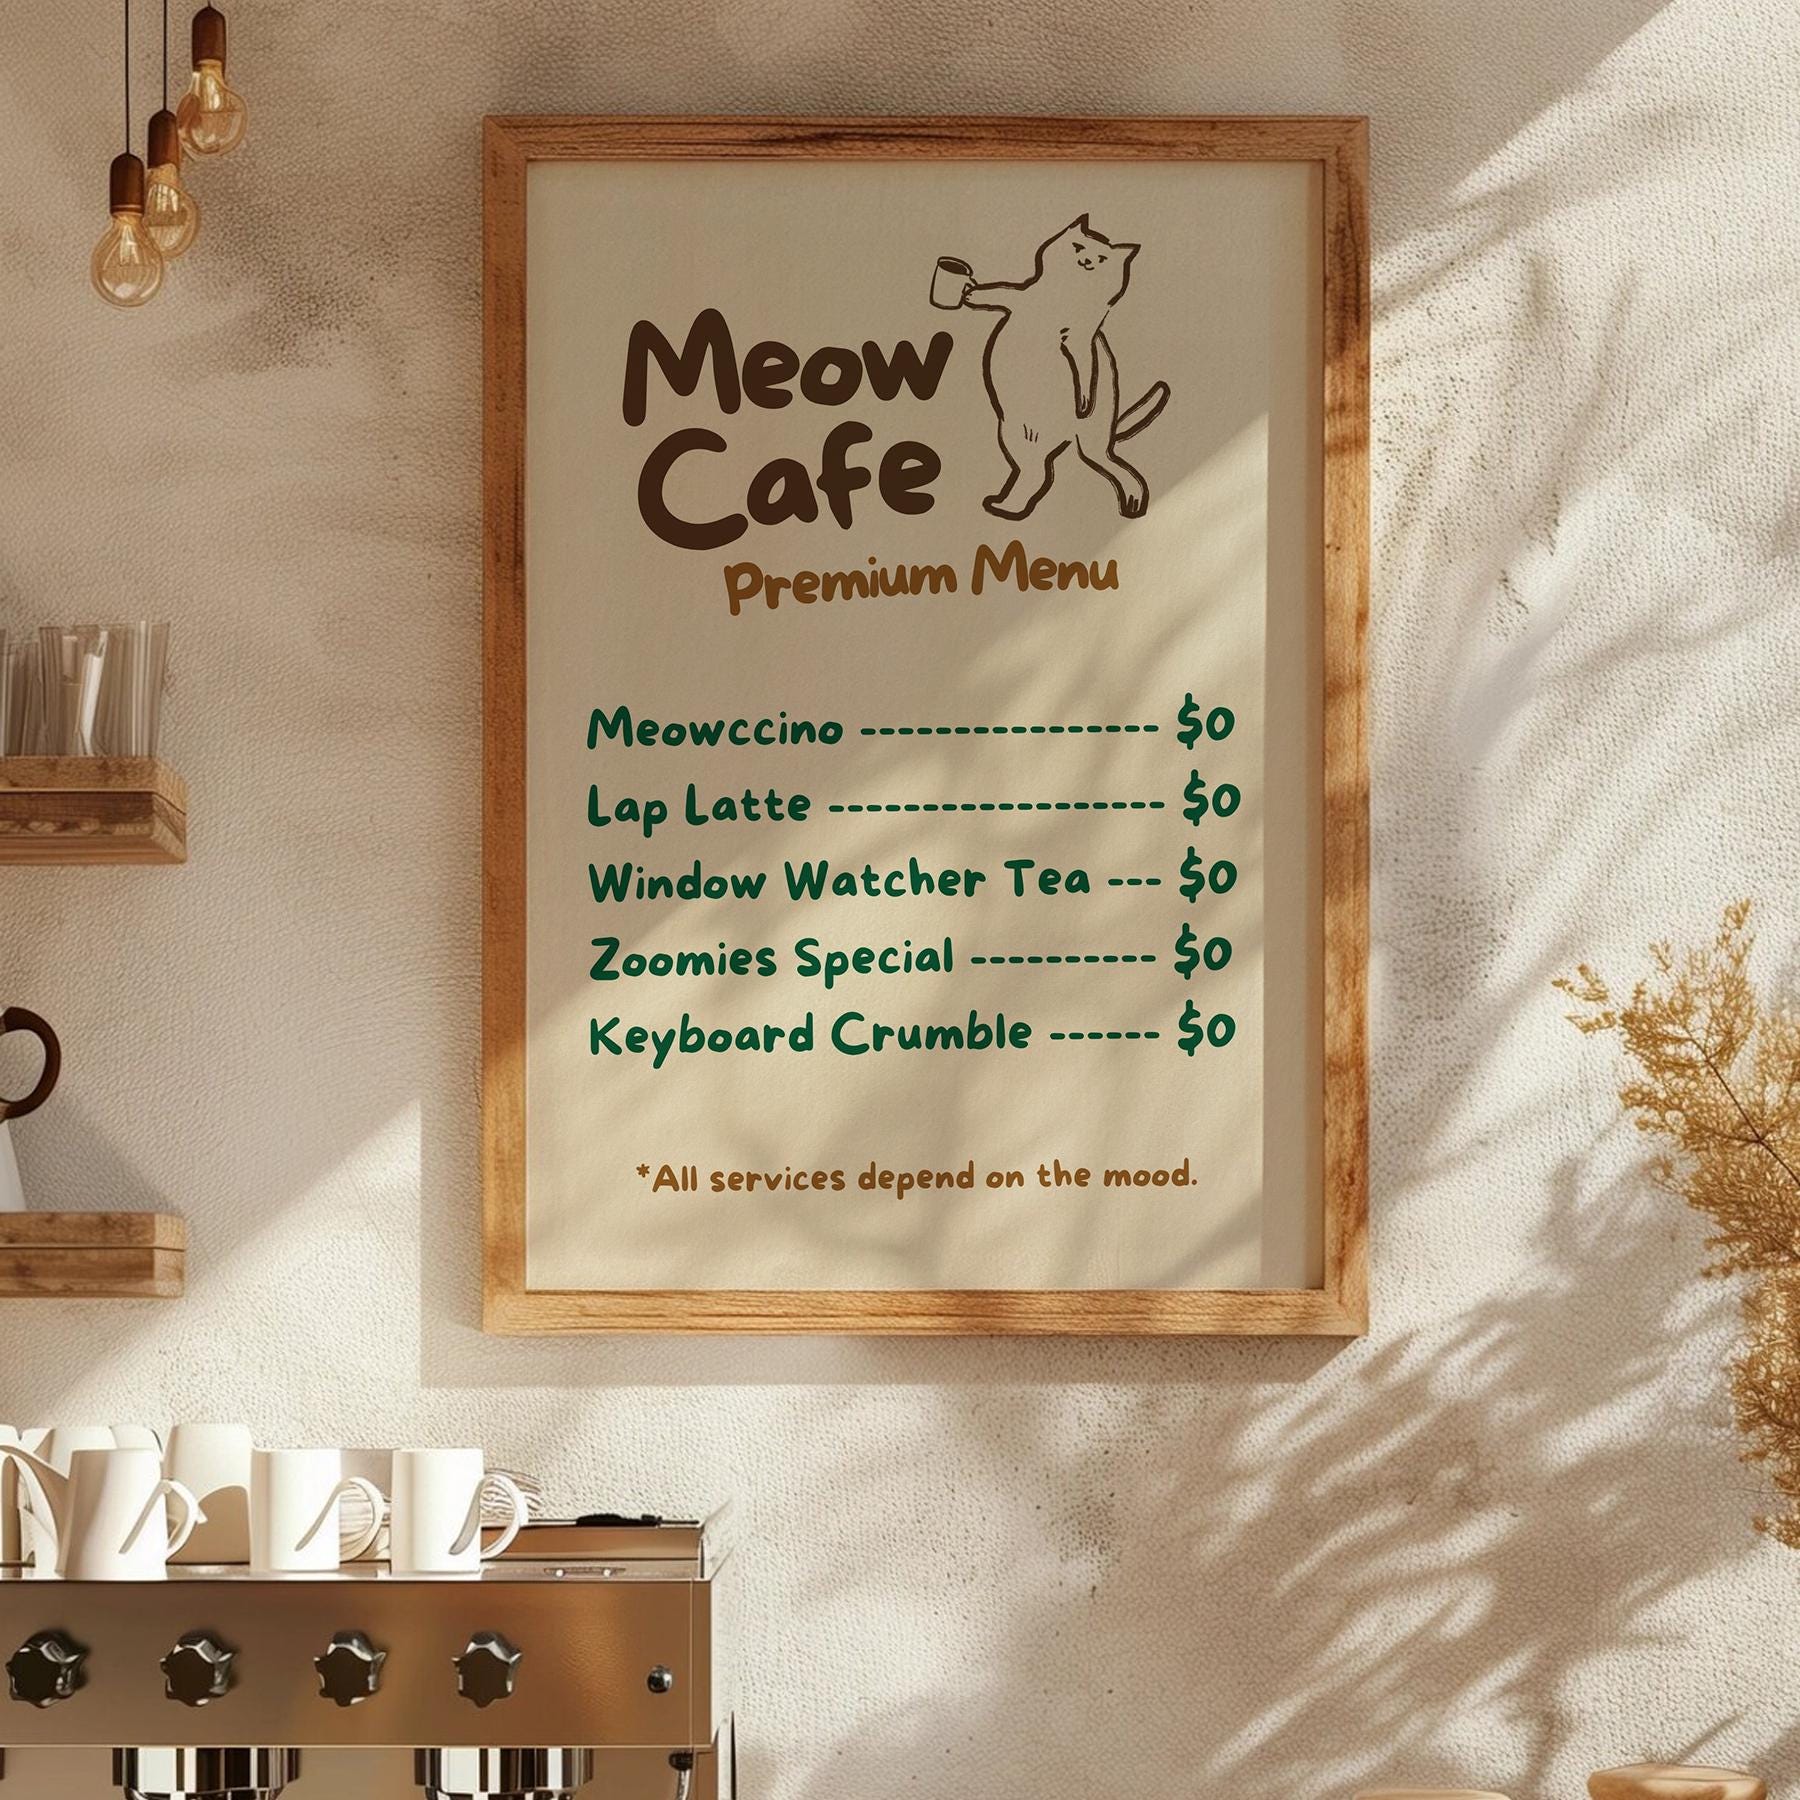 Meow
Cafe
Premium Menu
Meowccino ---------------- $0
Lap Latte ------------------ $0
Window Watcher Tea --- $0
Zoomies Special ---------- $0
Keyboard Crumble ------ $0
*All services depend on the mood.